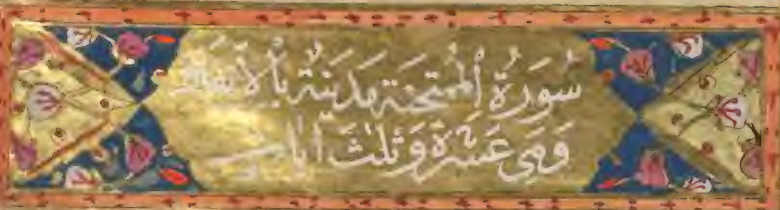 سُورَةُ الْمُمتَحِنَة مَدَنِيَّةٌ بِالْاِتِّفَاقِ
وَهِيَ عَشَرَةَ وَثَلٰثَ اٰيَاتٍ